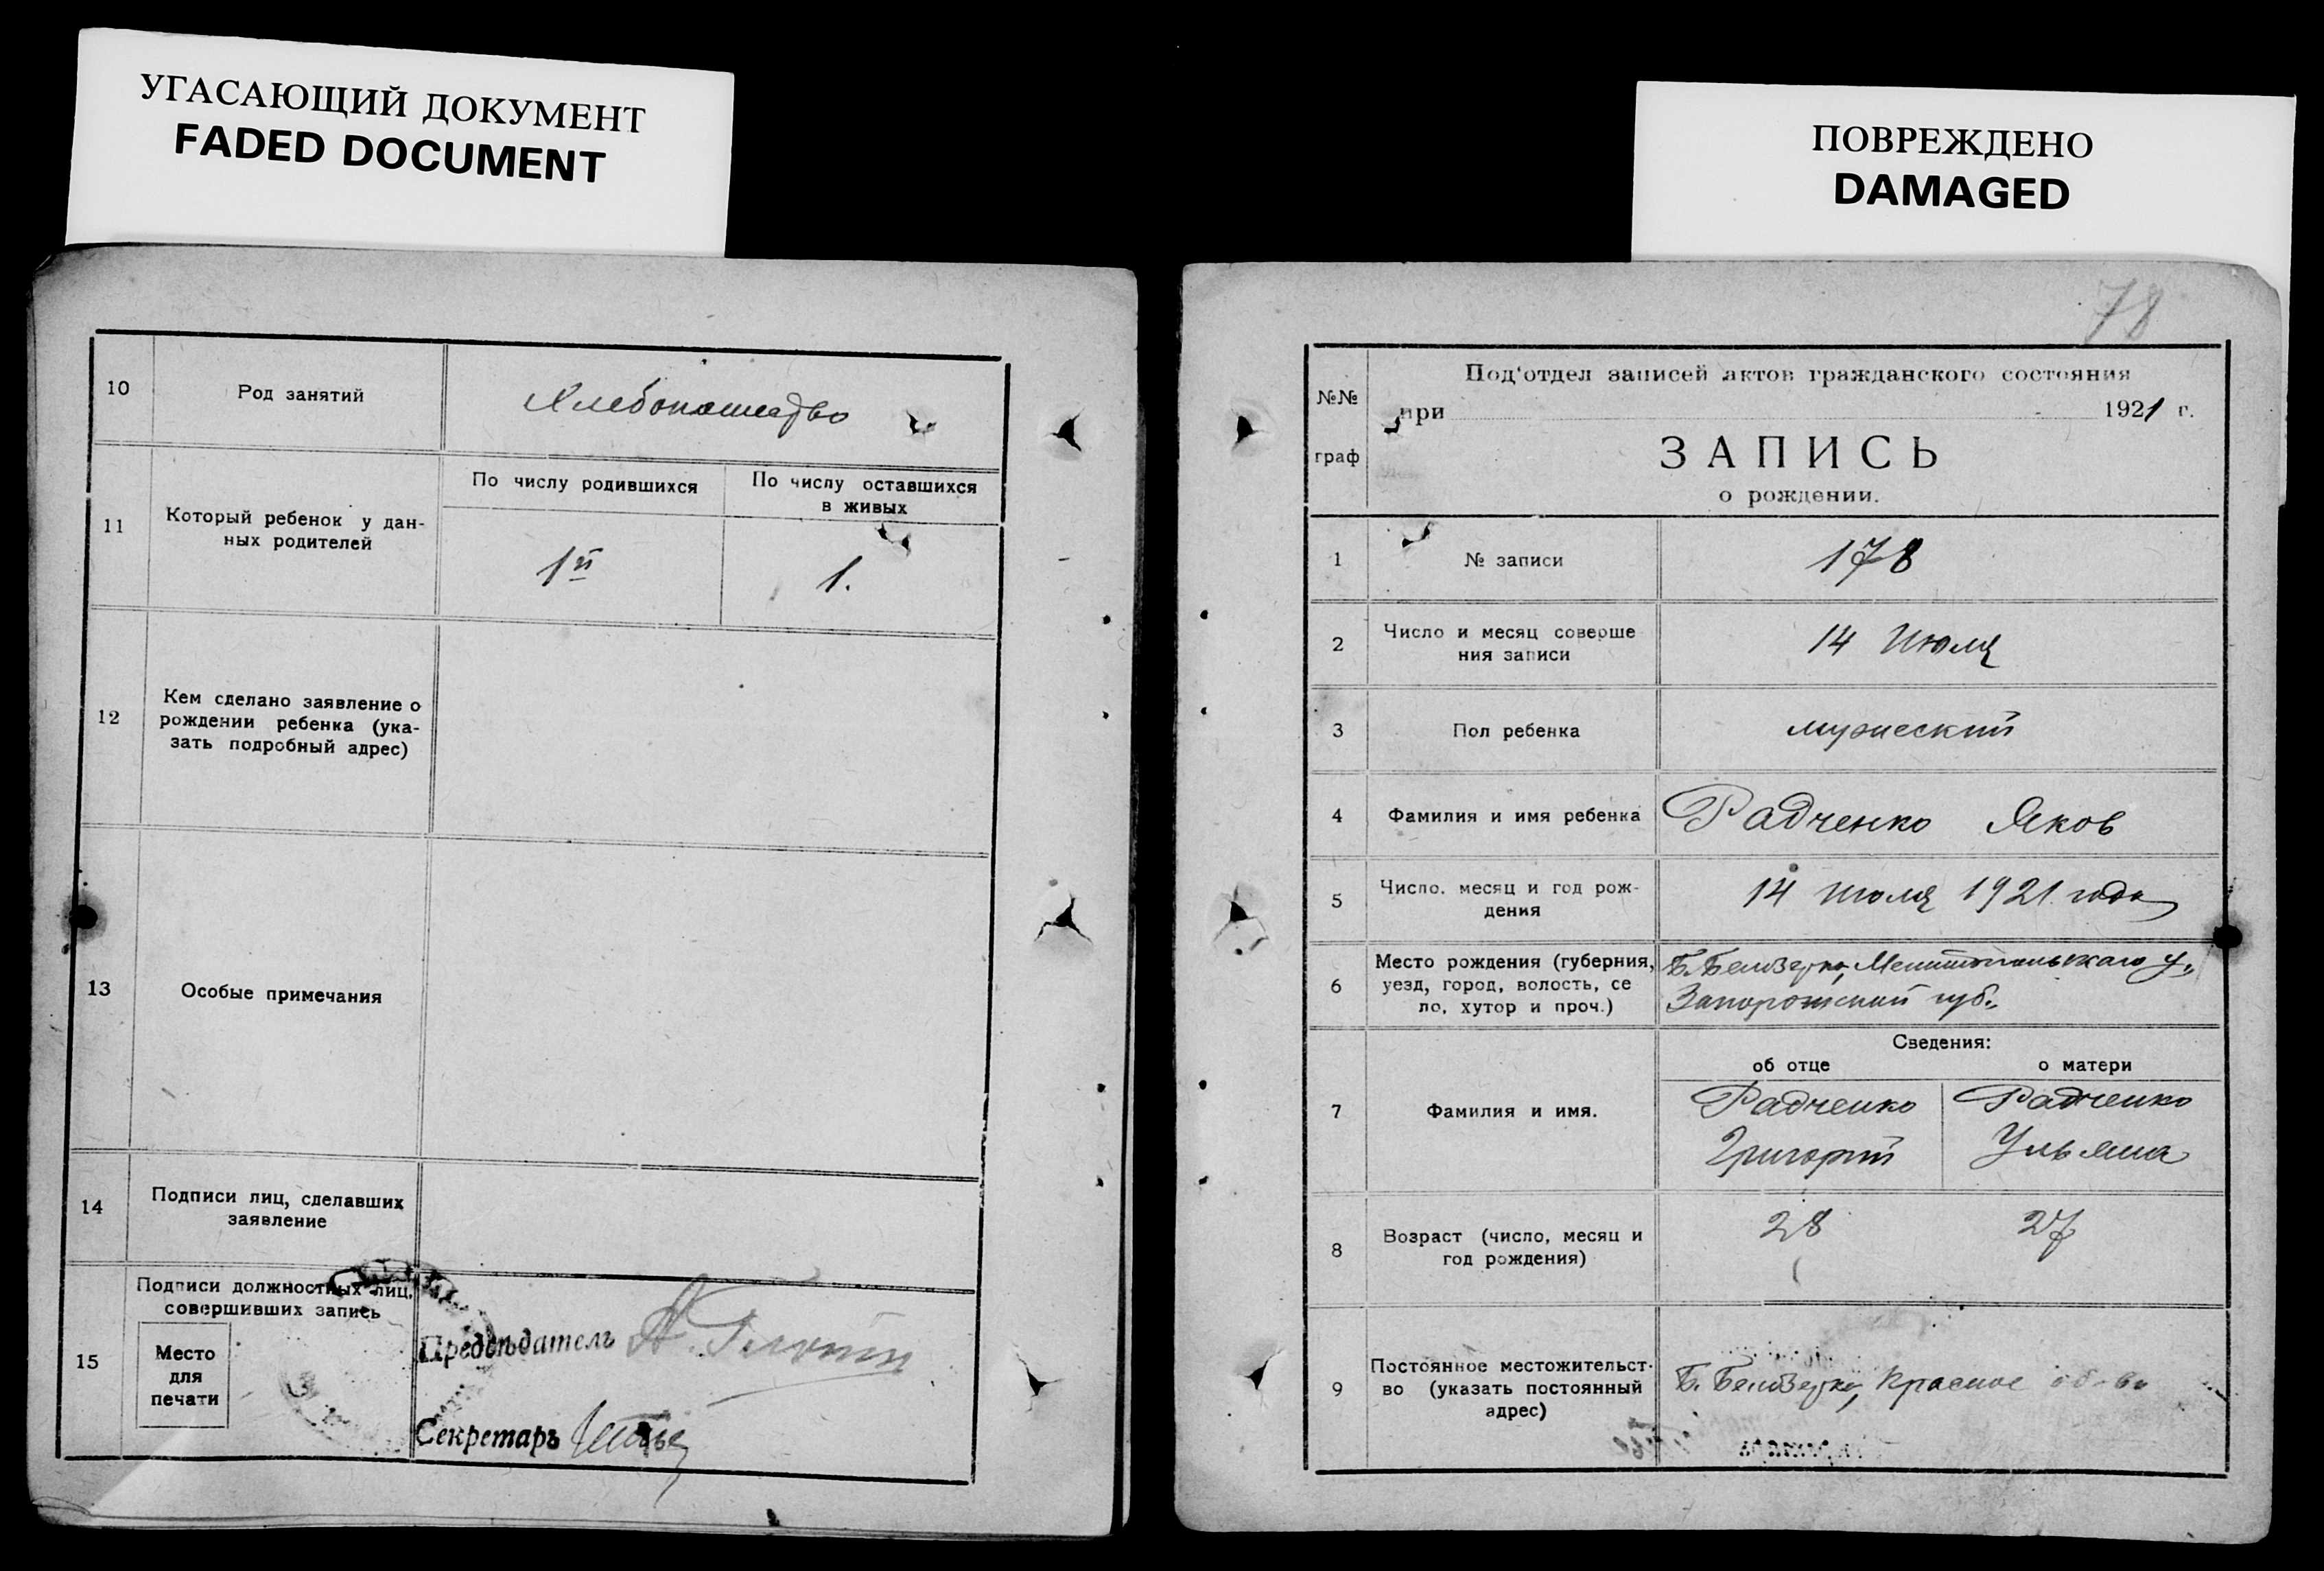 УГАСАЮЩИЙ ДОКУМЕНТ
FADED DOCUMENT
10
Род занятий
Хлебопашество
11
Который ребенок у дан-
ных родителей
По числу родившихся
По числу оставшихся
в живых
1й
1.
12
Кем сделано заявление о
рождении ребенка (ука-
зать подробный адрес)
13
Особые примечания
14
Подписи лиц, сделавших
заявление
15
Подписи должностных лиц,
совершивших запись
Место
для
печати
Председатель
Секретарь
ПОВРЕЖДЕНО
DAMAGED
78
№№
граф
Под'отдел записей актов гражданского состояния
при 1921 г.
ЗАПИСЬ
о рождении.
1
№ записи
178
2
Число и месяц соверше
ния записи
14 Июля
3
Пол ребенка
мужеский
4
Фамилия и имя ребенка
Радченко Яков
5
Число, месяц и год рож-
дения
14 июля 1921 года
6
Место рождения (губерния,
уезд, город, волость, се
ло, хутор и проч.)
Б. Белозерка, Мелитопольскаго у.,
Запорожской губ.
Сведения:
об отце
о матери
7
Фамилия и имя.
Радченко
Григорий
Радченко
Ульяна
8
Возраст (число, месяц и
год рождения)
28
27
9
Постоянное местожительст-
во (указать постоянный
адрес)
Б. Белозерка, Красное